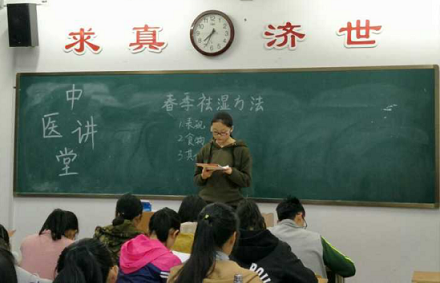 求真 济世
中医讲堂
春季祛湿方法
1.表现
2.食物
3.其